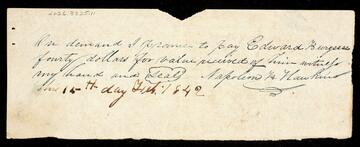 On demand I promise to pay Edward Burgess
fourty dollars for value received of him witness
my hand and Seal Napoleon B Hawkins
this 15th day Feb. 1842